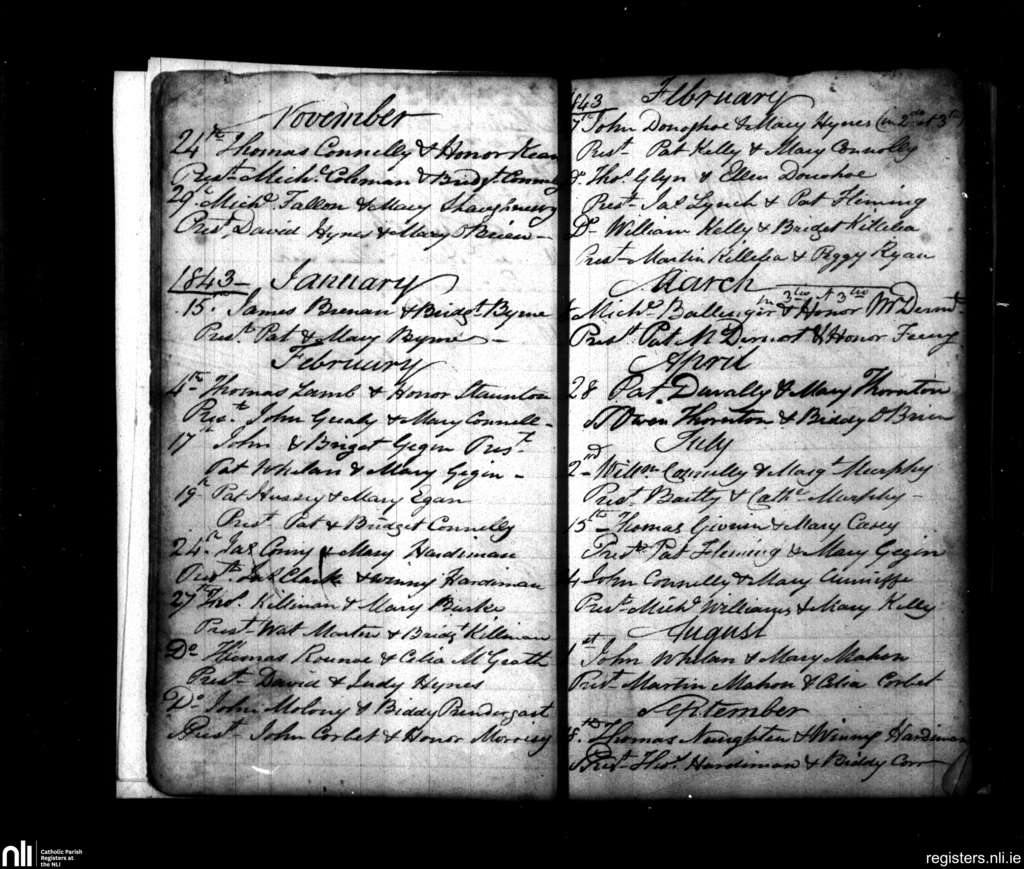 November
24th Thomas Connelly & Honor Kean
Prest. Michl. Coleman & Bridgt Connelly
29th Michl. Fallon & Mary Shaughnessy
Prest. David Hynes & Mary O'Brien
1843 - January
15. James Brenan & Bridgt. Byrne
Prest. Pat & Mary Byrne -
February
4th Thomas Lamb & Honor Staunton
Prest. John Gealy & Mary Connell -
17th John & Briget Gegin Prest.
Pat Whelan & Mary Gegin -
19th Pat Hussey & Mary Egan
Prest Pat & Bridget Connelly
24th Jas Conry & Mary Hardiman
Prest. Jas Clark & Winny Hardiman
27th Thos. Killinan & Mary Burke
Prest Wat Martin & Bridgt Killinan
Do Thomas Rounoe & Celia McGrath
Prest David & Judy Hynes
Do John Molony & Biddy Prendergast
Prest John Corbet & Honor Morrisy
1843 February
7th John Donoghoe & Mary Hynes (in 2nd at 3d)
Prest Pat Kelly & Mary Connolly
Do Thos Glyn & Ellen Donohoe
Prest Jas Lynch & Pat Fleming
Do William Kelly & Bridget Killelea
Prest Martin Killelea & Peggy Ryan
March
in 3tio et 3tio
Michl Ballinger & Honor McDermt
Prest Pat McDermot & Honor Feeny
April
28 Pat. Duvally & Mary Thornton
P Owen Thornton & Biddy O'Brien
July
2nd Willm Connelly & Margt Murphy
Prest Bartly & Cathe Murphy -
15th Thomas Givnin & Mary Casey
Prest Pat Fleming & Mary Gegin
John Connelly & Mary Cunniffe
Prest Michl Williams & Mary Kelly
August
1st John Whelan & Mary Mahon
Prest Martin Mahon & Celia Corbet
September
Thomas Naughten & Winny Hardiman
Prest Thos. Hardiman & Biddy Corr
nli
Catholic Parish
Registers at
the NLI
registers.nli.ie